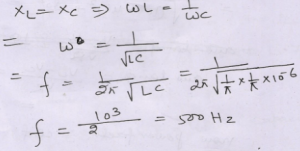 XL = XC ⇒ WL = 1/WC
= W = 1/√LC
= f = 1/2π √LC = 1/2π √1/π × 1/π × 10-6
f = 10³/2 = 500 Hz